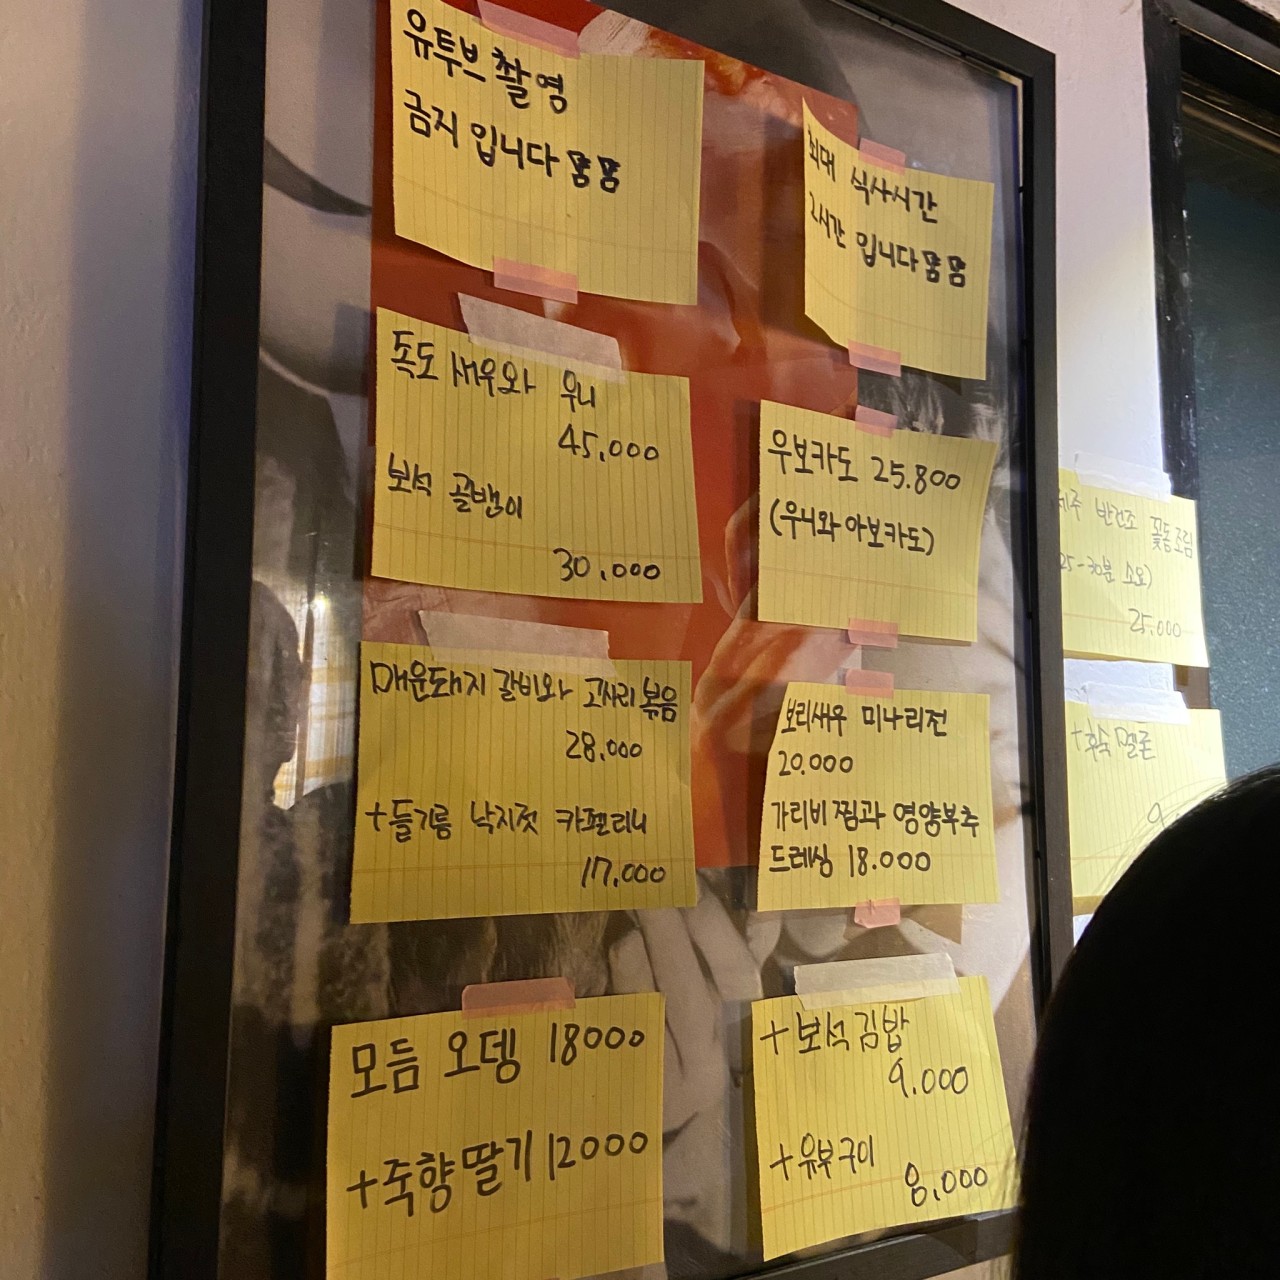 유투브 촬영
금지 입니다
최대 식사시간
2시간 입니다
독도 새우와 우니
45,000
보석 골뱅이
30,000
우보카도 25.800
(우니와 아보카도)
매운돼지 갈비와 고사리 볶음
28,000
+들기름 낙지젓 카펠리니
17,000
보리새우 미나리전
20.000
가리비 찜과 영양부추
드레싱 18.000
모듬 오뎅 18000
+죽향딸기 12000
+보석 김밥
9.000
+유부구이
8,000
제주 반건조 꽃돔조림
25-30분 소요)
25.000
+후숙 멜론